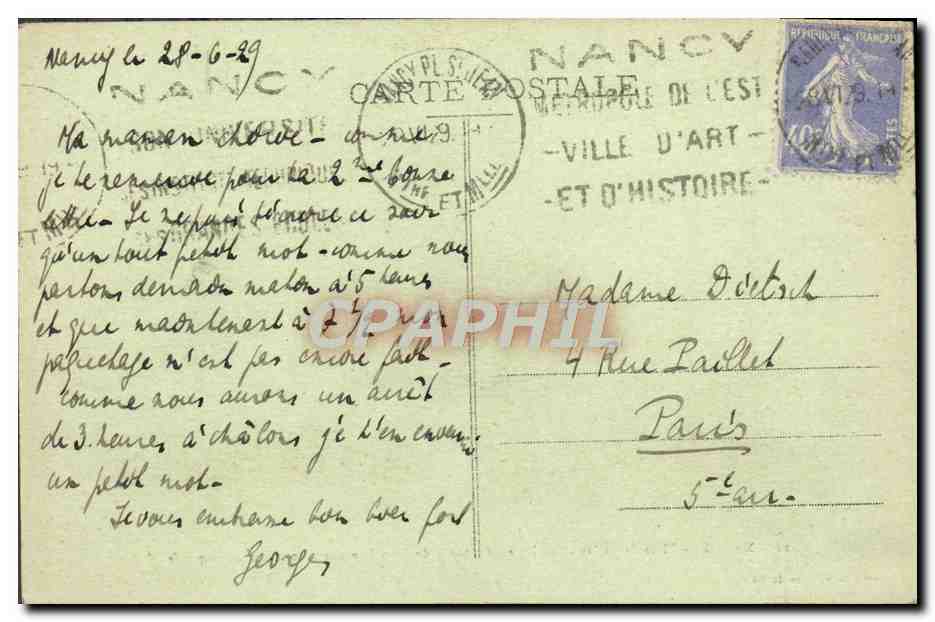 Nancy le 28-6-29
NANCY
CARTE POSTALE
NANCY PL. ST JEAN
MTHE ET MLLE
NANCY
METROPOLE DE L'EST
-VILLE D'ART-
-ET D'HISTOIRE-
REPUBLIQUE FRANÇAISE
40c
POSTES
SON UNIVERSITE
Ma maman chérie - comme
je te remercie pour ta 2me bonne
lettre - Je ne puis t'écrire ce soir
qu'un tout petit mot - comme nous
partons demain matin à 5 heures
et que maintenant à 7 1/2 mon
paquetage n'est pas encore fait -
comme nous aurons un arrêt
de 3 heures à châlons je t'en enverrai
un petit mot -
Je vous embrasse bien bien fort
Georges
Madame Dietsch
4 Rue Paillet
Paris
5e arr -
CPAPHIL